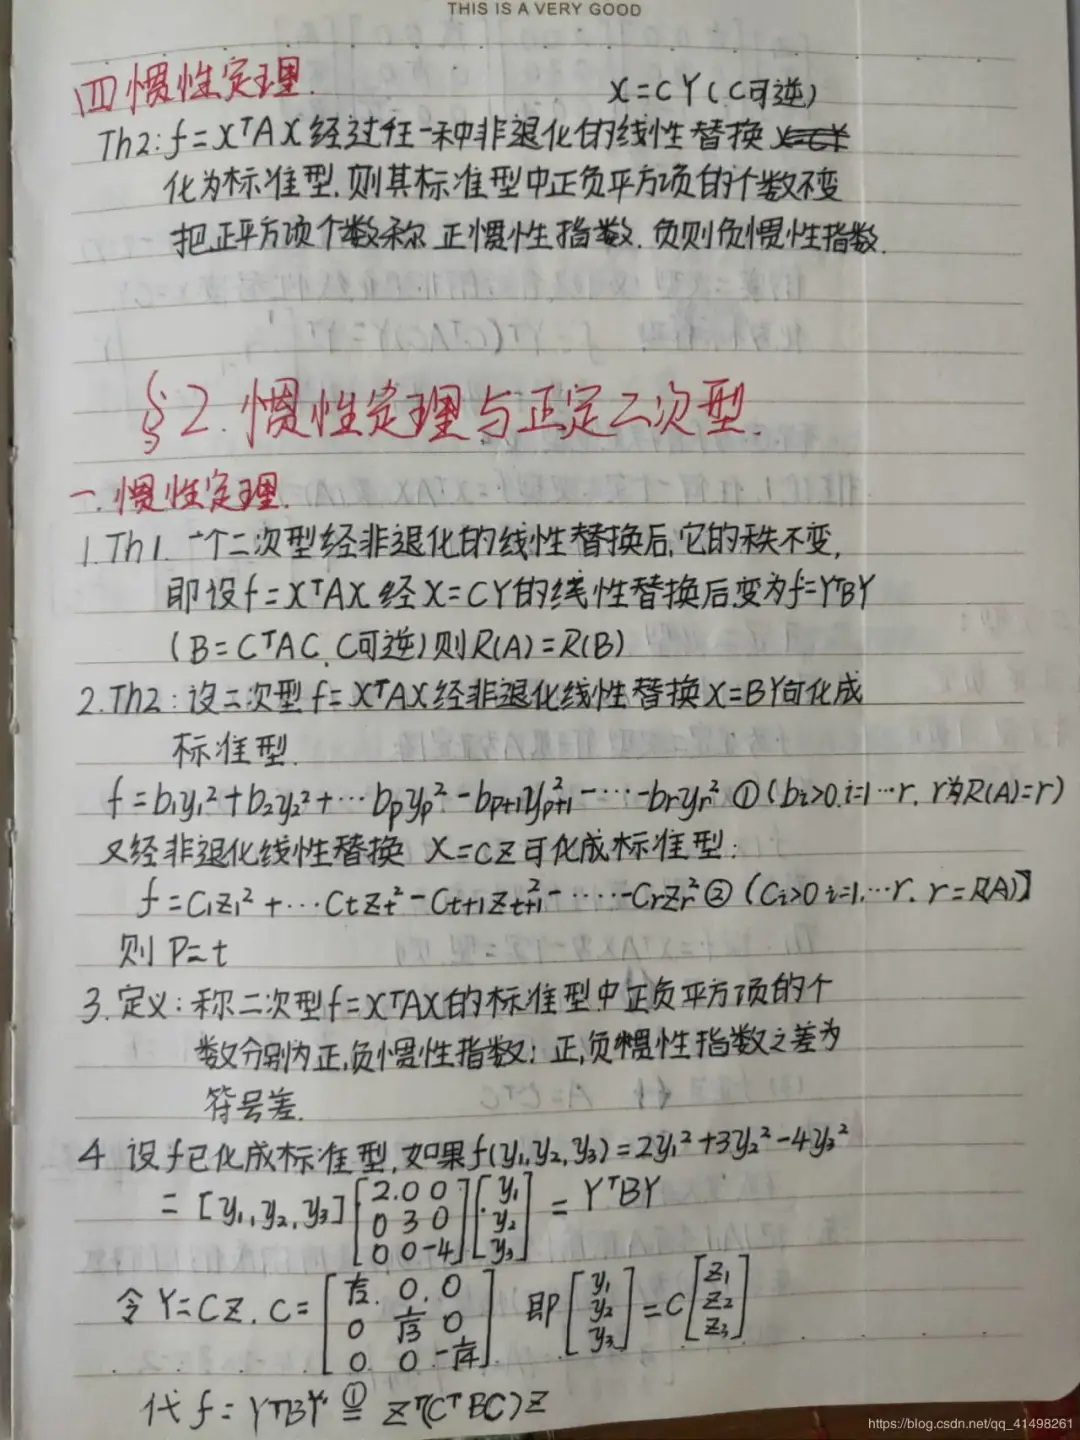 THIS IS A VERY GOOD
四 惯性定理.
X=CY(C可逆)
Th2: f=XᵀAX经过任一种非退化的线性替换
化为标准型.则其标准型中正负平方项的个数不变
把正平方项个数称 正惯性指数. 负则负惯性指数.
§2. 惯性定理与正定二次型.
一. 惯性定理.
1.Th1. 一个二次型经非退化的线性替换后,它的秩不变,
即设f=XᵀAX 经X=CY的线性替换后变为f=YᵀBY
(B=CᵀAC, C可逆)则R(A)=R(B)
2.Th2: 设二次型 f=XᵀAX经非退化线性替换X=BY可化成
标准型.
f=b₁y₁²+b₂y₂²+…bₚyₚ²-bₚ₊₁yₚ₊₁²-…-bᵣyᵣ² ① (bᵢ>0.i=1…r. r为R(A)=r)
又经非退化线性替换 X=CZ可化成标准型:
f=C₁Z₁²+…CₜZₜ²-Cₜ₊₁Zₜ₊₁²-……-CᵣZᵣ² ② (Cᵢ>0 i=1.…r. r=R(A))
则 P=t
3. 定义: 称二次型f=XᵀAX的标准型中正负平方项的个
数分别为正,负惯性指数; 正,负惯性指数之差为
符号差.
4 设f已化成标准型,如果f(y₁,y₂,y₃)=2y₁²+3y₂²-4y₃²
= [y₁,y₂,y₃] [2.0 0; 0 3 0; 0 0 -4] [y₁; y₂; y₃] = YᵀBY
令Y=CZ. C= [1/√2. 0. 0; 0 1/√3 0; 0 0 -1/√4] 即 [y₁; y₂; y₃] = C [Z₁; Z₂; Z₃]
代 f=YᵀBY ①= Zᵀ(CᵀBC)Z
https://blog.csdn.net/qq_41498261